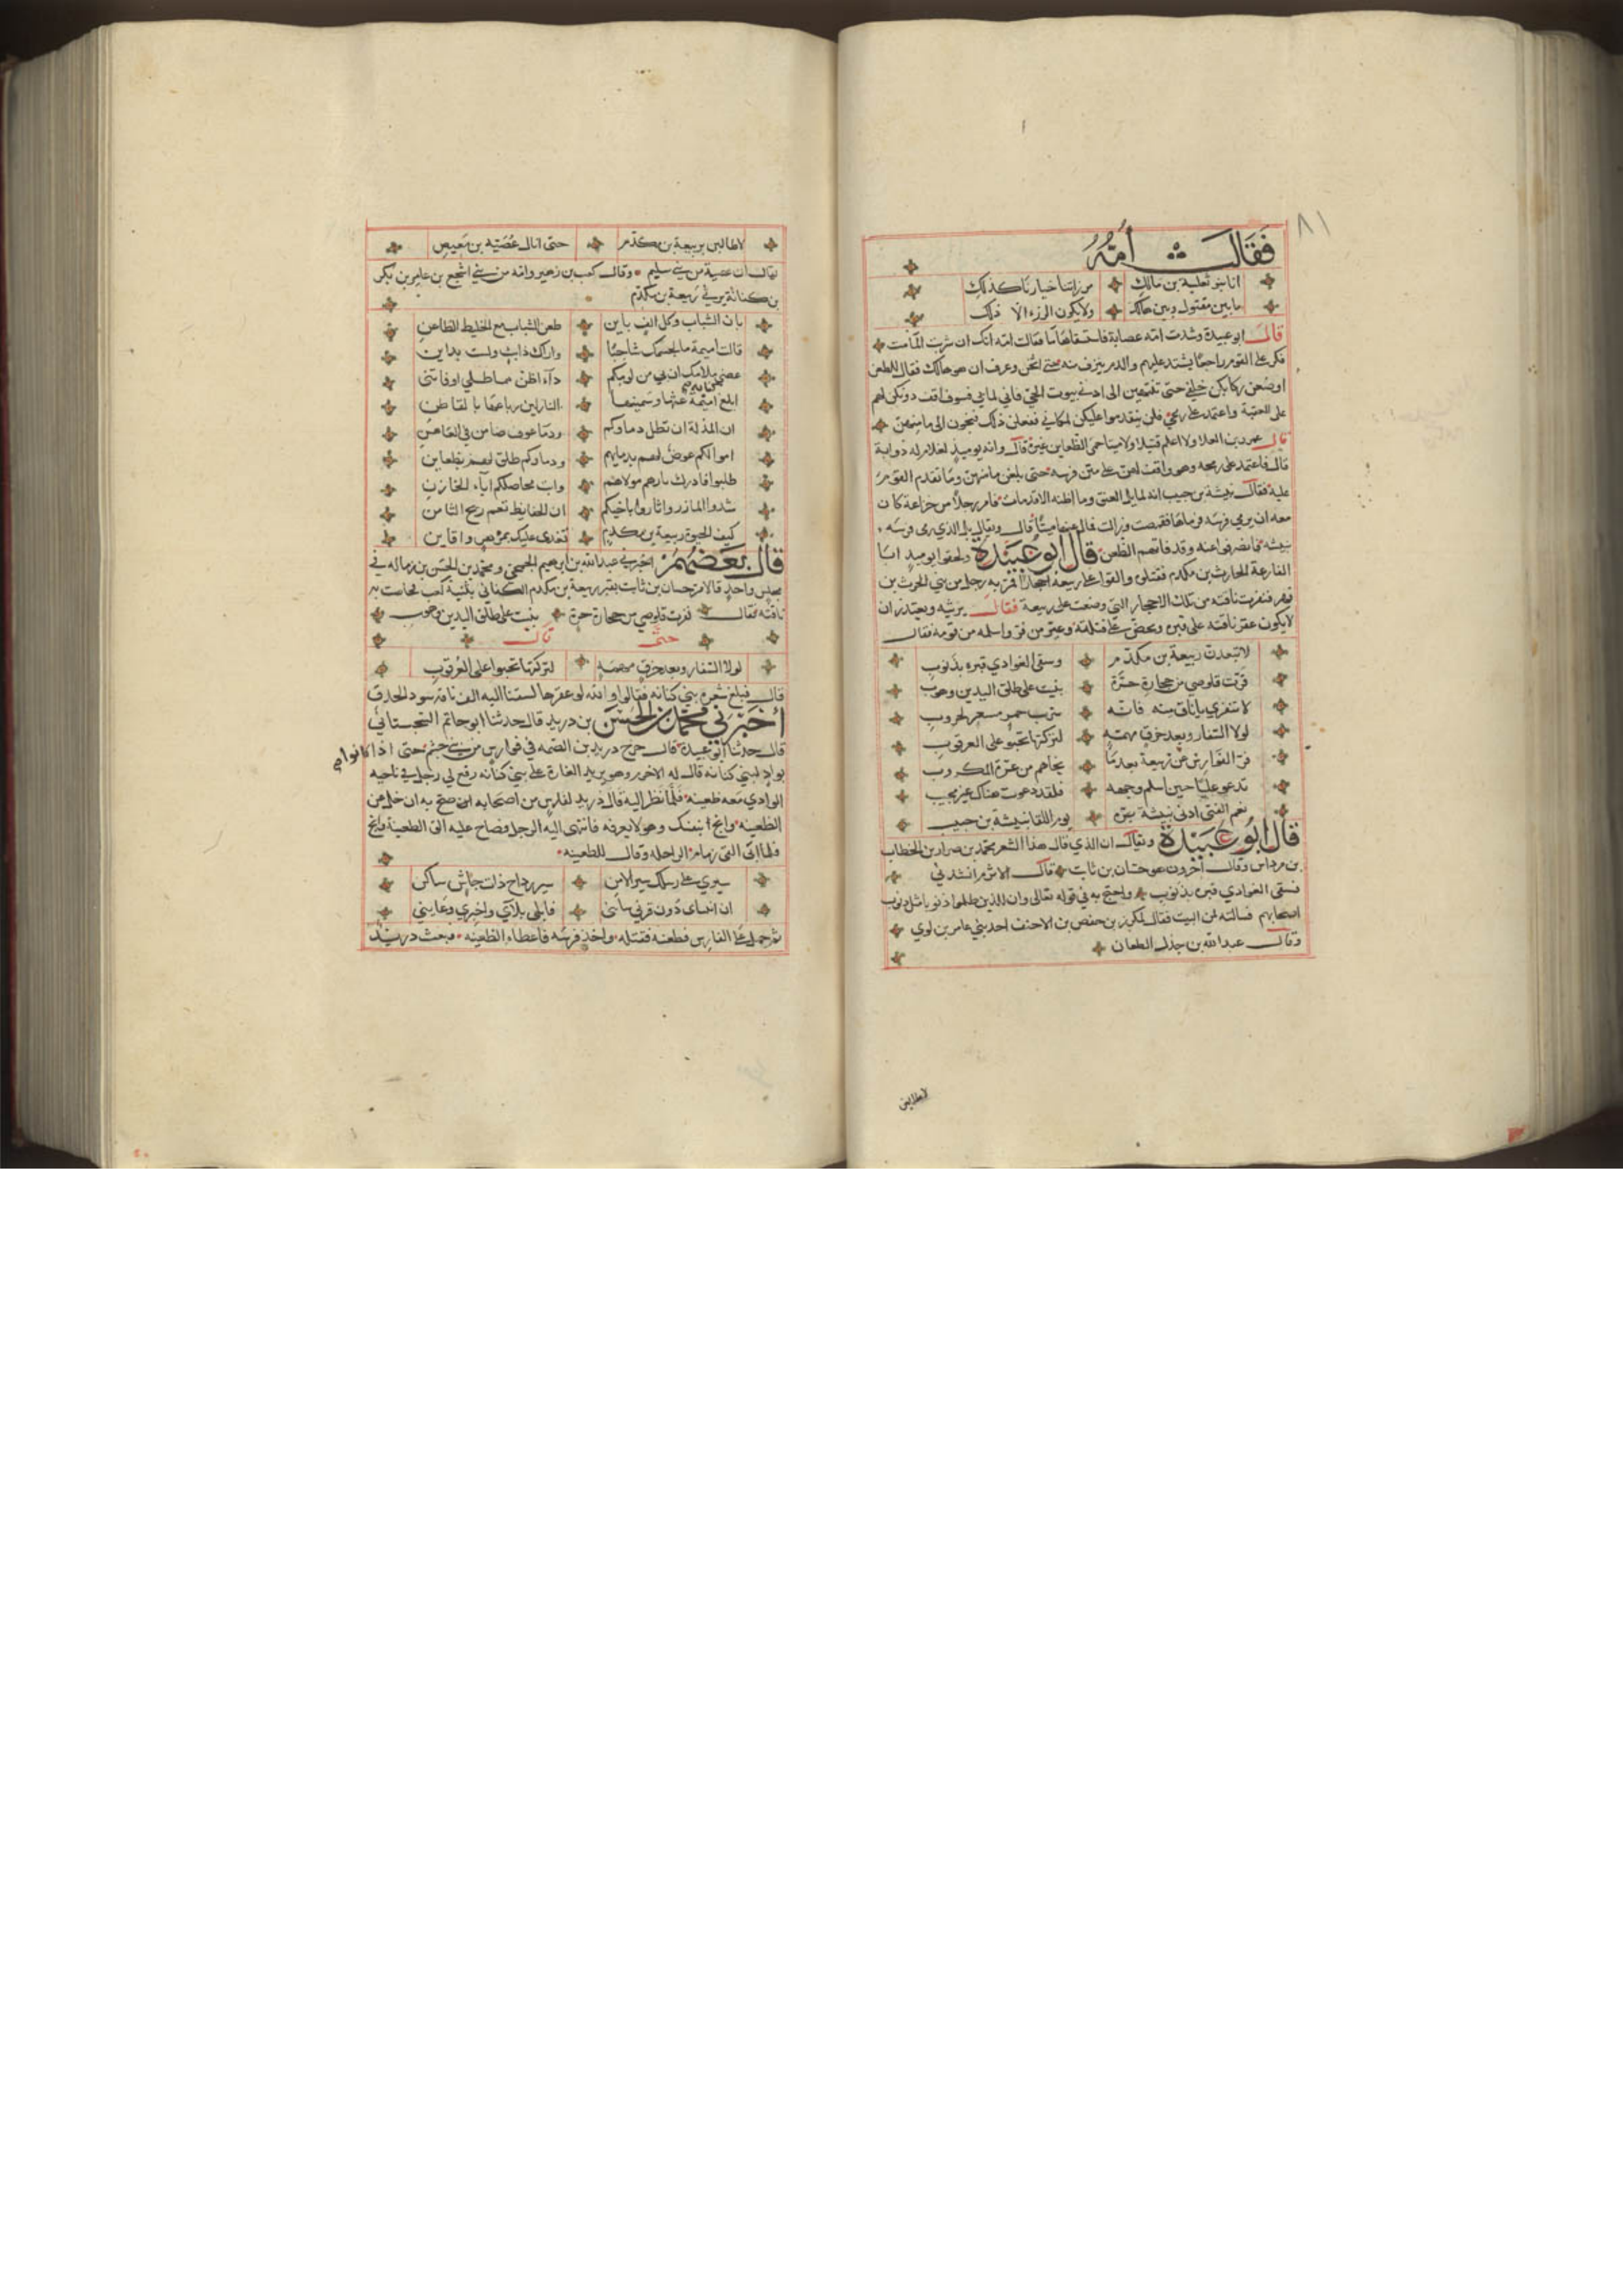 ٨١
فَقَالَت أُمُّهُ
انا بنو ثعلبة بن مالك مرزاتنا خيارنا كذلك
ما بين مقتول وبين هالك ولا يكون الرزء الا ذلك
قال ابو عبيدة وشدت امه عصابة فاستسقاها ما فقالت امه انك ان شربت الما مت
فكر على القوم راجعا يشتد عليهم والدم ينزف منه حتى اثخن وعرف ان هو هالك فقال للظعن
اوضعن ركابكن خلفي حتى تنتهين الى ادنى بيوت الحي فاني لما بي فسوف اقف دونكن لهم
على العقبة واعتمد على رمحي فلن يتقدموا عليكن لمكاني ففعلن ذلك فنجون الى مامنهن
قال عمرو بن العلا ولا اعلم قتيلا ولا ميتا حمى الظعاين غيره قال وانه يوميذ لغلام له ذوابة
قال فاعتمد على رمحه وهو واقف لهن على متن فرسه حتى بلغن مامنهن وما تقدم القوم
عليه فقال نبيشة بن حبيب انه لمايل العنق وما اظنه الا قد مات فامر رجلا من خزاعة كان
معه ان يرمي فرسه فرماها فقمصت وزالت فمال عنها ميتا قال ويقال بل الذي رمى فرسه
نبيشة فانصرفوا عنه وقد فاتهم الظعن قال ابو عبيدة ولحقوا يوميذ ابا
الفارعة الحارث بن مكدم فقتلوه والقوا على ربيعة احجارا فمر به رجل من بني الحرث بن
فهر فنفرت ناقته من تلك الاحجار التي وضعت على ربيعة فقال يرثيه ويعتذر ان
لا يكون عقر ناقته على قبره ويحض على قتلته وعير من فر واسلمه من قومه فقال
لا تبعدن ربيعة بن مكدم وسقى الغوادي قبره بذنوب
نفرت قلوصي من حجارة حرة بنيت على طلق اليدين وهوب
لا تنفري يا ناق منه فانه شريب خمر مسعر لحروب
لولا السفار وبعد خرق مهمه لتركتها تحبو على العرقوب
فر الفوارس عن ربيعة بعدما نجاهم من غمرة المكروب
تدعو عليا حين اسلم وجهه فلقد دعوت هناك غير مجيب
نعم الفتى ادى نبيشة بزه يوم اللقا نبيشة بن حبيب
قال ابو عبيدة ويقال ان الذي قال هذا الشعر محمد بن ضرار بن الخطاب
بن مرداس وقال اخرون هو حسان بن ثابت قال الاثرم انشدني
فسقى الغوادي قبره بذنوب واحتج به في قوله تعالى وان للذين ظلموا ذنوبا مثل ذنوب
اصحابهم فسالته لمن البيت فقال لمكرز بن حفص بن الاحنف احد بني عامر بن لوي
وقال عبد الله بن جذل الطعان
لاطلبن
لاطلبن بربيعة بن مكدم حتى انال عصية بن معيص
يقال ان عصية من بني سليم وقال كعب بن زهير وامه من بني اشجع بن عامر بن بكر
بن كنانة يرثي ربيعة بن مكدم
بان الشباب وكل الف باين ظعن الشباب مع الخليط الظاعن
قالت اميمة ما لجسمك شاحبا واراك ذا بث ولست بداين
غضي ملامك ان بي من لومكم داء اظن مماطلي او فاتني
ابلغ
ان المذلة ان تطل دماوكم ودما عوف ضامن في العاهن
اموالكم عوض لهم بدمايهم ودماوكم طلق لهم بظعاين
طلبوا فادرك
شدوا المازر واثاروا باخيكم ان الحفايظ نعم ربح الثامن
كيف الحيوة ربيعة بن مكدم تغدى عليك بمزهر
قال بعضهم اخبرني عبد الله بن ابرهيم الجمحي ومحمد بن الحسن بن زباله في
مجلس واحد قالا مر حسان بن ثابت بقبر ربيعة بن مكدم الكناني بثنية كعب فحاصت به
ناقته فقال نفرت قلوصي من حجارة حرة بنيت على طلق اليدين وهوب
حتى قال
لولا السفار وبعد خرق مهمه لتركتها تحبوا على العرقوب
قال فبلغ شعره بني كنانه فقالوا والله لو عقرها لسقنا اليه الف ناقة سود الحدق
أخبرني محمد بن الحسن بن دريد قال حدثنا ابو حاتم السجستاني
قال حدثنا ابو عبيدة قال خرج دريد بن الصمه في فوارس من بني جشم حتى اذا كانوا
بواد لبني كنانه قال له الاخرم وهو يريد الغارة على بني كنانه رفع لي رجل في ناحيه
الوادي معه ظعينه فلما نظر اليه قال دريد لفارس من اصحابه امن صح به ان خل عن
الظعينه وانج بنفسك وهو لا يعرفه فانتهى اليه الرجل فصاح عليه الق الظعينة وانج
فلما ابى القى زمام الراحله وقال للظعينه
سيري على رسلك سير الامن سير رداح ذات جاش ساكن
ان انثناي دون قرني شانني فابلي بلاي واخبري وعايني
ثم حمل على الفارس فطعنه فقتله واخذ فرسه فاعطاه الظعينه فبعث دريد